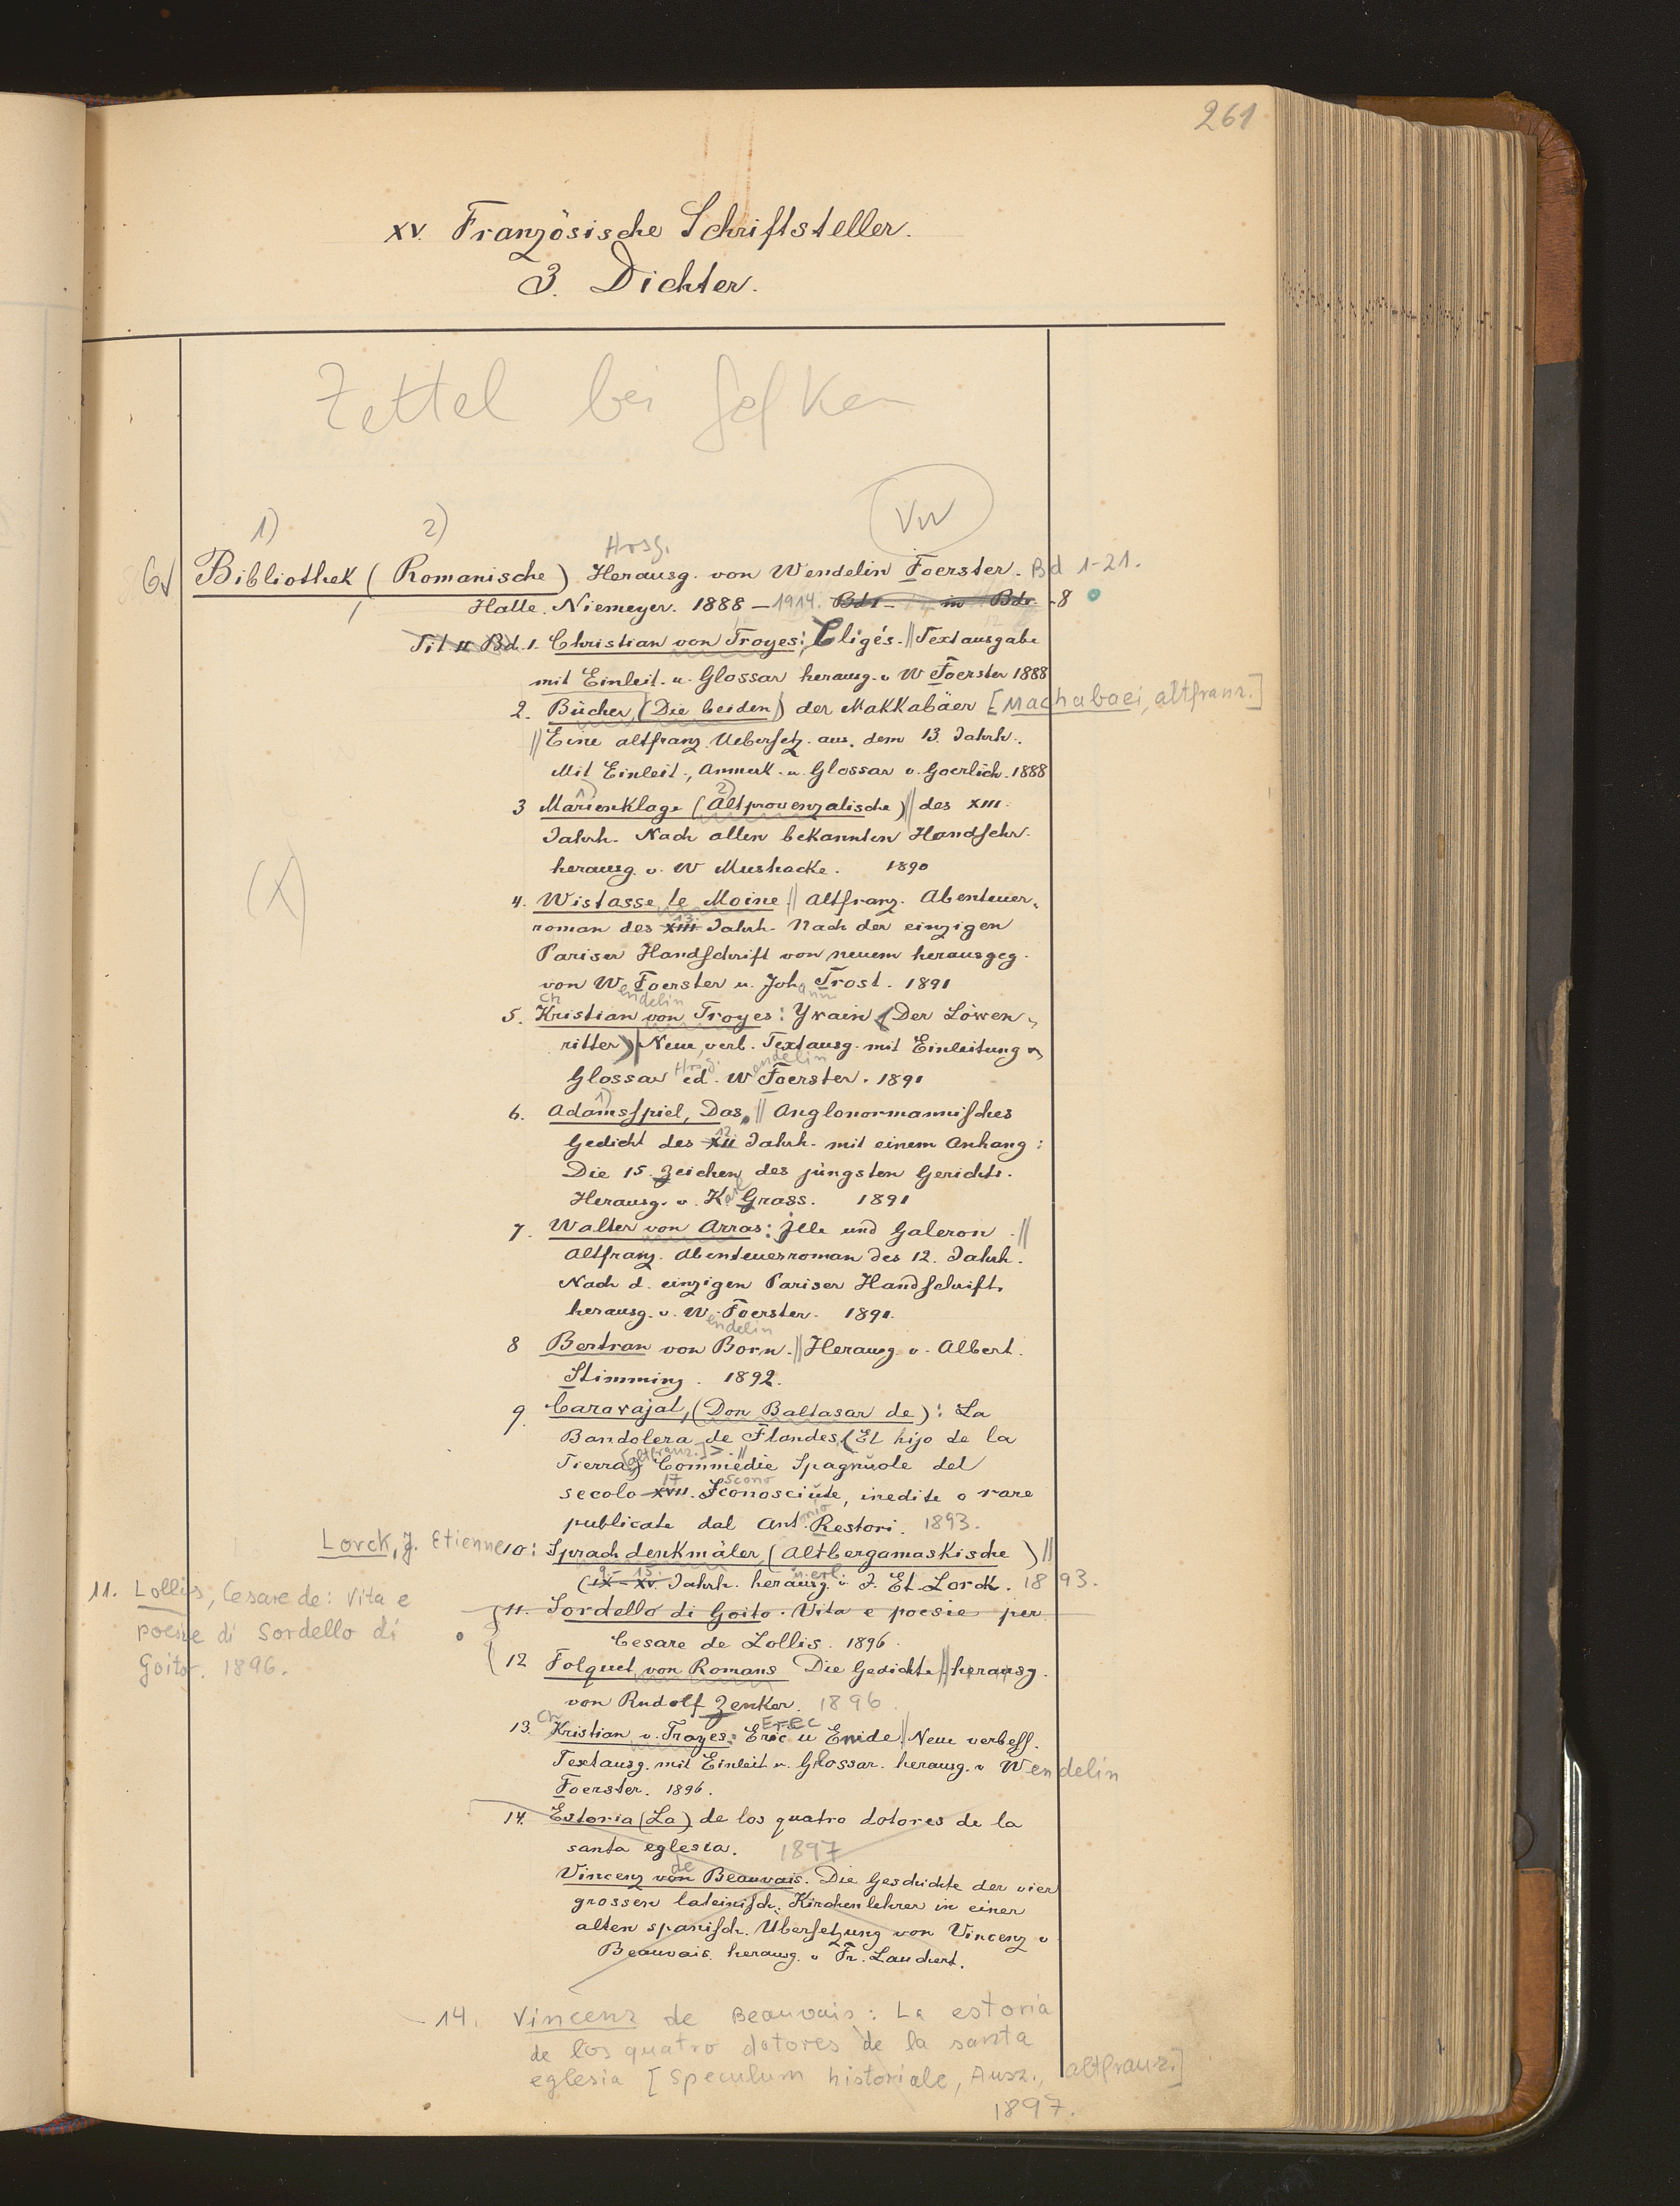 261
XV. Französische Schriftsteller.
3. Dichter.
Zettel bei
VW
1) 2) Hrsg.
6 Bibliothek (Romanische) Herausg. von Wendelin Foerster. Bd 1-21.
Halle. Niemeyer. 1888 - 1914. 8
Tit u Bd. 1. Christian von Troyes: Cligés. || Textausgabe
mit Einleit. u. Glossar herausg. v W Foerster 1888
2. Bücher, (Die beiden) der Makkabäer [Machabaei, altfranz.]
|| Eine altfranz. Uebersetz. aus. dem 13. Jahrh.
Mit Einleit., Anmerk. u. Glossar v. Goerlich. 1888
1) 2)
3 Marienklage (Altprovenzalische) || des XIII.
Jahrh. Nach allen bekannten Handschr.
herausg. v. W Mushacke. 1890
(X)
4. Wistasse le Moine || Altfranz. Abenteuer-
roman des XIII 13. Jahrh. Nach der einzigen
Pariser Handschrift von neuem herausgeg.
von Wendelin Foerster u. Johann Trost. 1891
Ch
5. Kristian von Troyes: Yvain (Der Löwen-
ritter) | Neue, verb. Textausg. mit Einleitung u
Glossar Hrsg. ed. Wendelin Foerster. 1891
1)
6. Adamsspiel, Das, || Anglonormannisches
Gedicht des XII 12. Jahrh. mit einem Anhang:
Die 15. Zeichen des jüngsten Gerichts.
Herausg. v. Karl Grass. 1891
7. Walter von Arras: Ille und Galeron. ||
Altfranz. Abenteuerroman des 12. Jahrh.
Nach d. einzigen Pariser Handschrift.
herausg. v. Wendelin Foerster. 1891.
8 Bertran von Born. || Herausg. v. Albert.
Stimming. 1892.
9. Caravajal, (Don Baltasar de): La
Bandolera de Flandes, (El hijo de la
Tierra) [altfranz.]>. || Commedie Spagnuole del
secolo XVII 17. Sconosciute, inedite o rare
publicate dal Antonio Restori. 1893.
Lorck, J. Etienne 10: Sprachdenkmäler, (Altbergamaskische) ||
(IX - XV. 9.- 15. Jahrh. herausg. u. erl. v. J. Et. Lorck. 1893.
11. Lollis, Cesare de: Vita e
poesie di Sordello di
Goito. 1896.
11. Sordello di Goito. Vita e poesie per
Cesare de Lollis. 1896.
12 Folquet von Romans Die Gedichte || herausg.
von Rudolf Zenker. 1896.
Ch Erec
13. Kristian v. Troyes: Eric u Enide || Neue verbess.
Textausg. mit Einleit u. Glossar. herausg. v Wendelin
Foerster. 1896.
14. Estoria (La) de los quatro dotores de la
santa eglesia. 1897
Vincenz von de Beauvais. Die Geschichte der vier
grossen lateinisch. Kirchenlehrer in einer
alten spanisch. Übersetzung von Vincenz v
Beauvais. herausg. v Fr. Lauchert.
14. Vincenz de Beauvais: La estoria
de los quatro dotores de la santa
eglesia [Speculum historiale, Ausz., altfranz.]
1897.